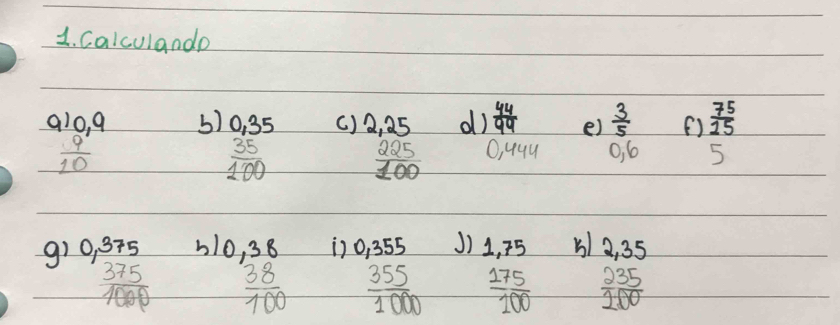 1. Calculando
a) 0,9 b) 0,35 c) 2,25 d) 44/99 e) 3/5 f) 75/15
9/10 35/100 225/100 0,444 0,6 5
g) 0,375 h) 0,38 i) 0,355 J) 1,75 k) 2,35
375/1000 38/100 355/1000 175/100 235/100